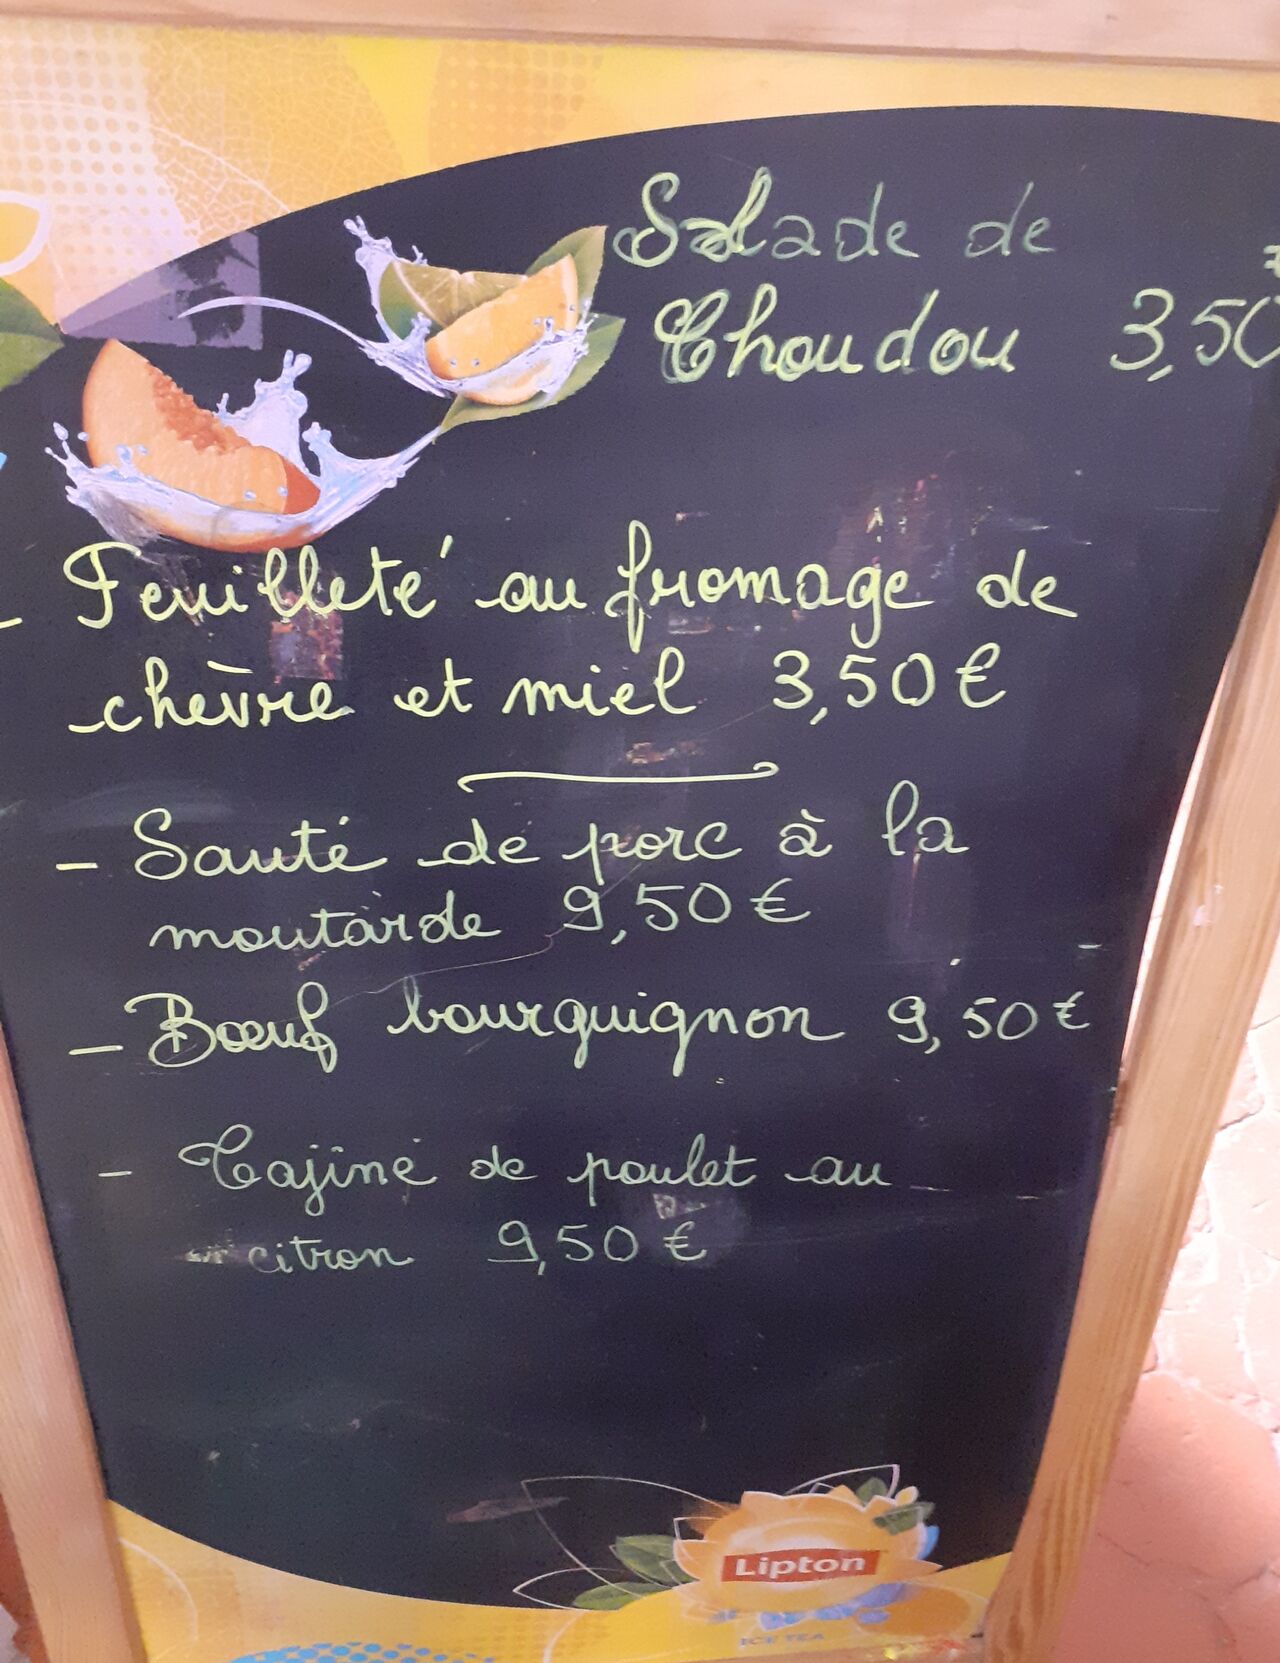 Salade de
Choudou 3,50
- Feuilleté au fromage de
chèvre et miel 3,50€
- Sauté de porc à la
moutarde 9,50€
- Bœuf bourguignon 9,50€
- Tajine de poulet au
citron 9,50€
Lipton
ICE TEA